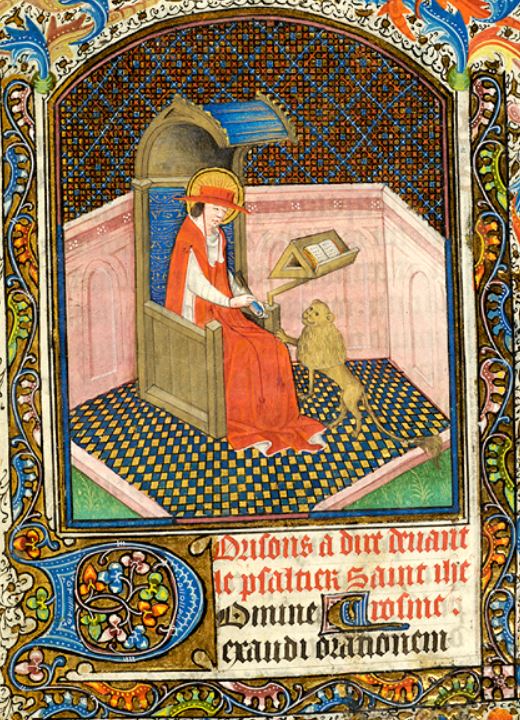 Orisons a dire devant
le psaltier Saint ihe
Domine rosme .
exaudi orationem